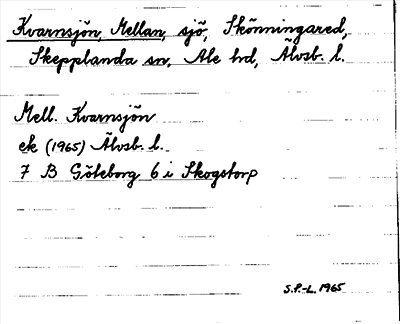 Kvarnsjön, Mellan, sjö, Skönningared,
Skepplanda sn, Ale hd, Älvsb. l.
Mell. Kvarnsjön
ek (1965) Älvsb. l.
7 B Göteborg 6 i Skogstorp
S.P.-L. 1965